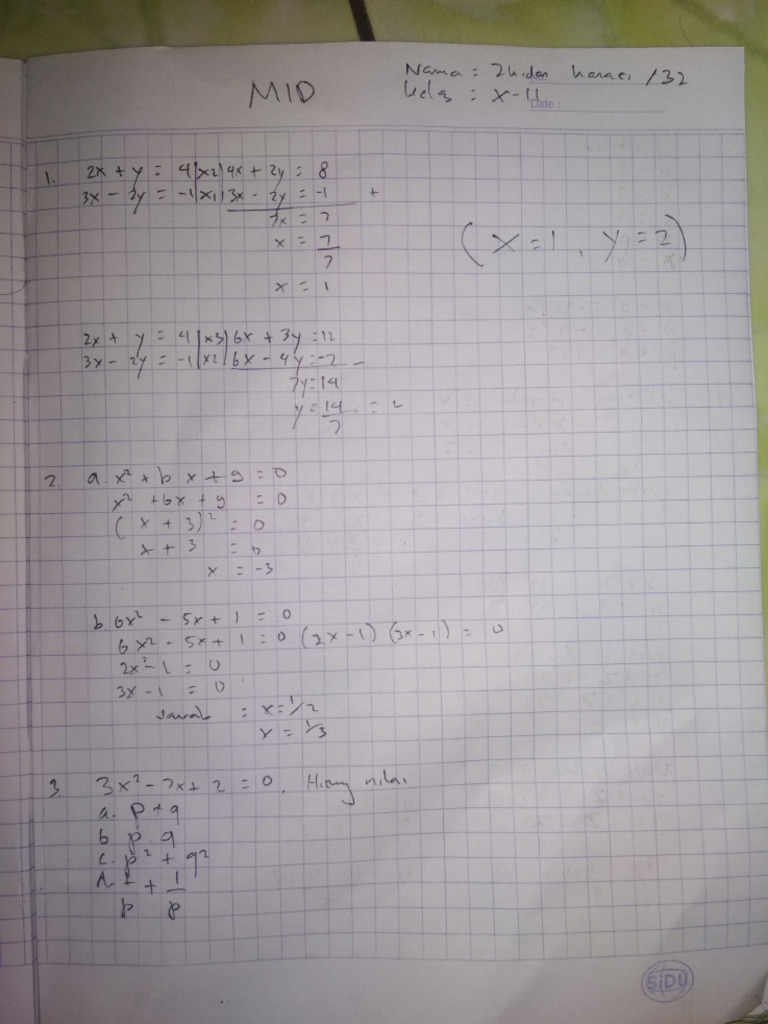 MID
Nama : Zhidan /32
Kelas : X-11
Date :
1. 2x + y = 4 |x2| 4x + 2y = 8
3x - 2y = -1 |x1| 3x - 2y = -1 +
7x = 7
x = 7/7
x = 1
(x = 1, y = 2)
2x + y = 4 |x3| 6x + 3y = 12
3x - 2y = -1 |x2| 6x - 4y = -2 -
7y = 14
y = 14/7 = 2
2. a. x² + b x + 9 = 0
x² + 6x + 9 = 0
(x + 3)² = 0
x + 3 = 0
x = -3
b. 6x² - 5x + 1 = 0
6x² - 5x + 1 = 0 (2x - 1) (3x - 1) = 0
2x² - 1 = 0
3x - 1 = 0
Jawab = x = 1/2
x = 1/3
3. 3x² - 7x + 2 = 0. Hitung nilai
a. p + q
b. p q
c. p² + q²
d. 1/p + 1/p
SiDU